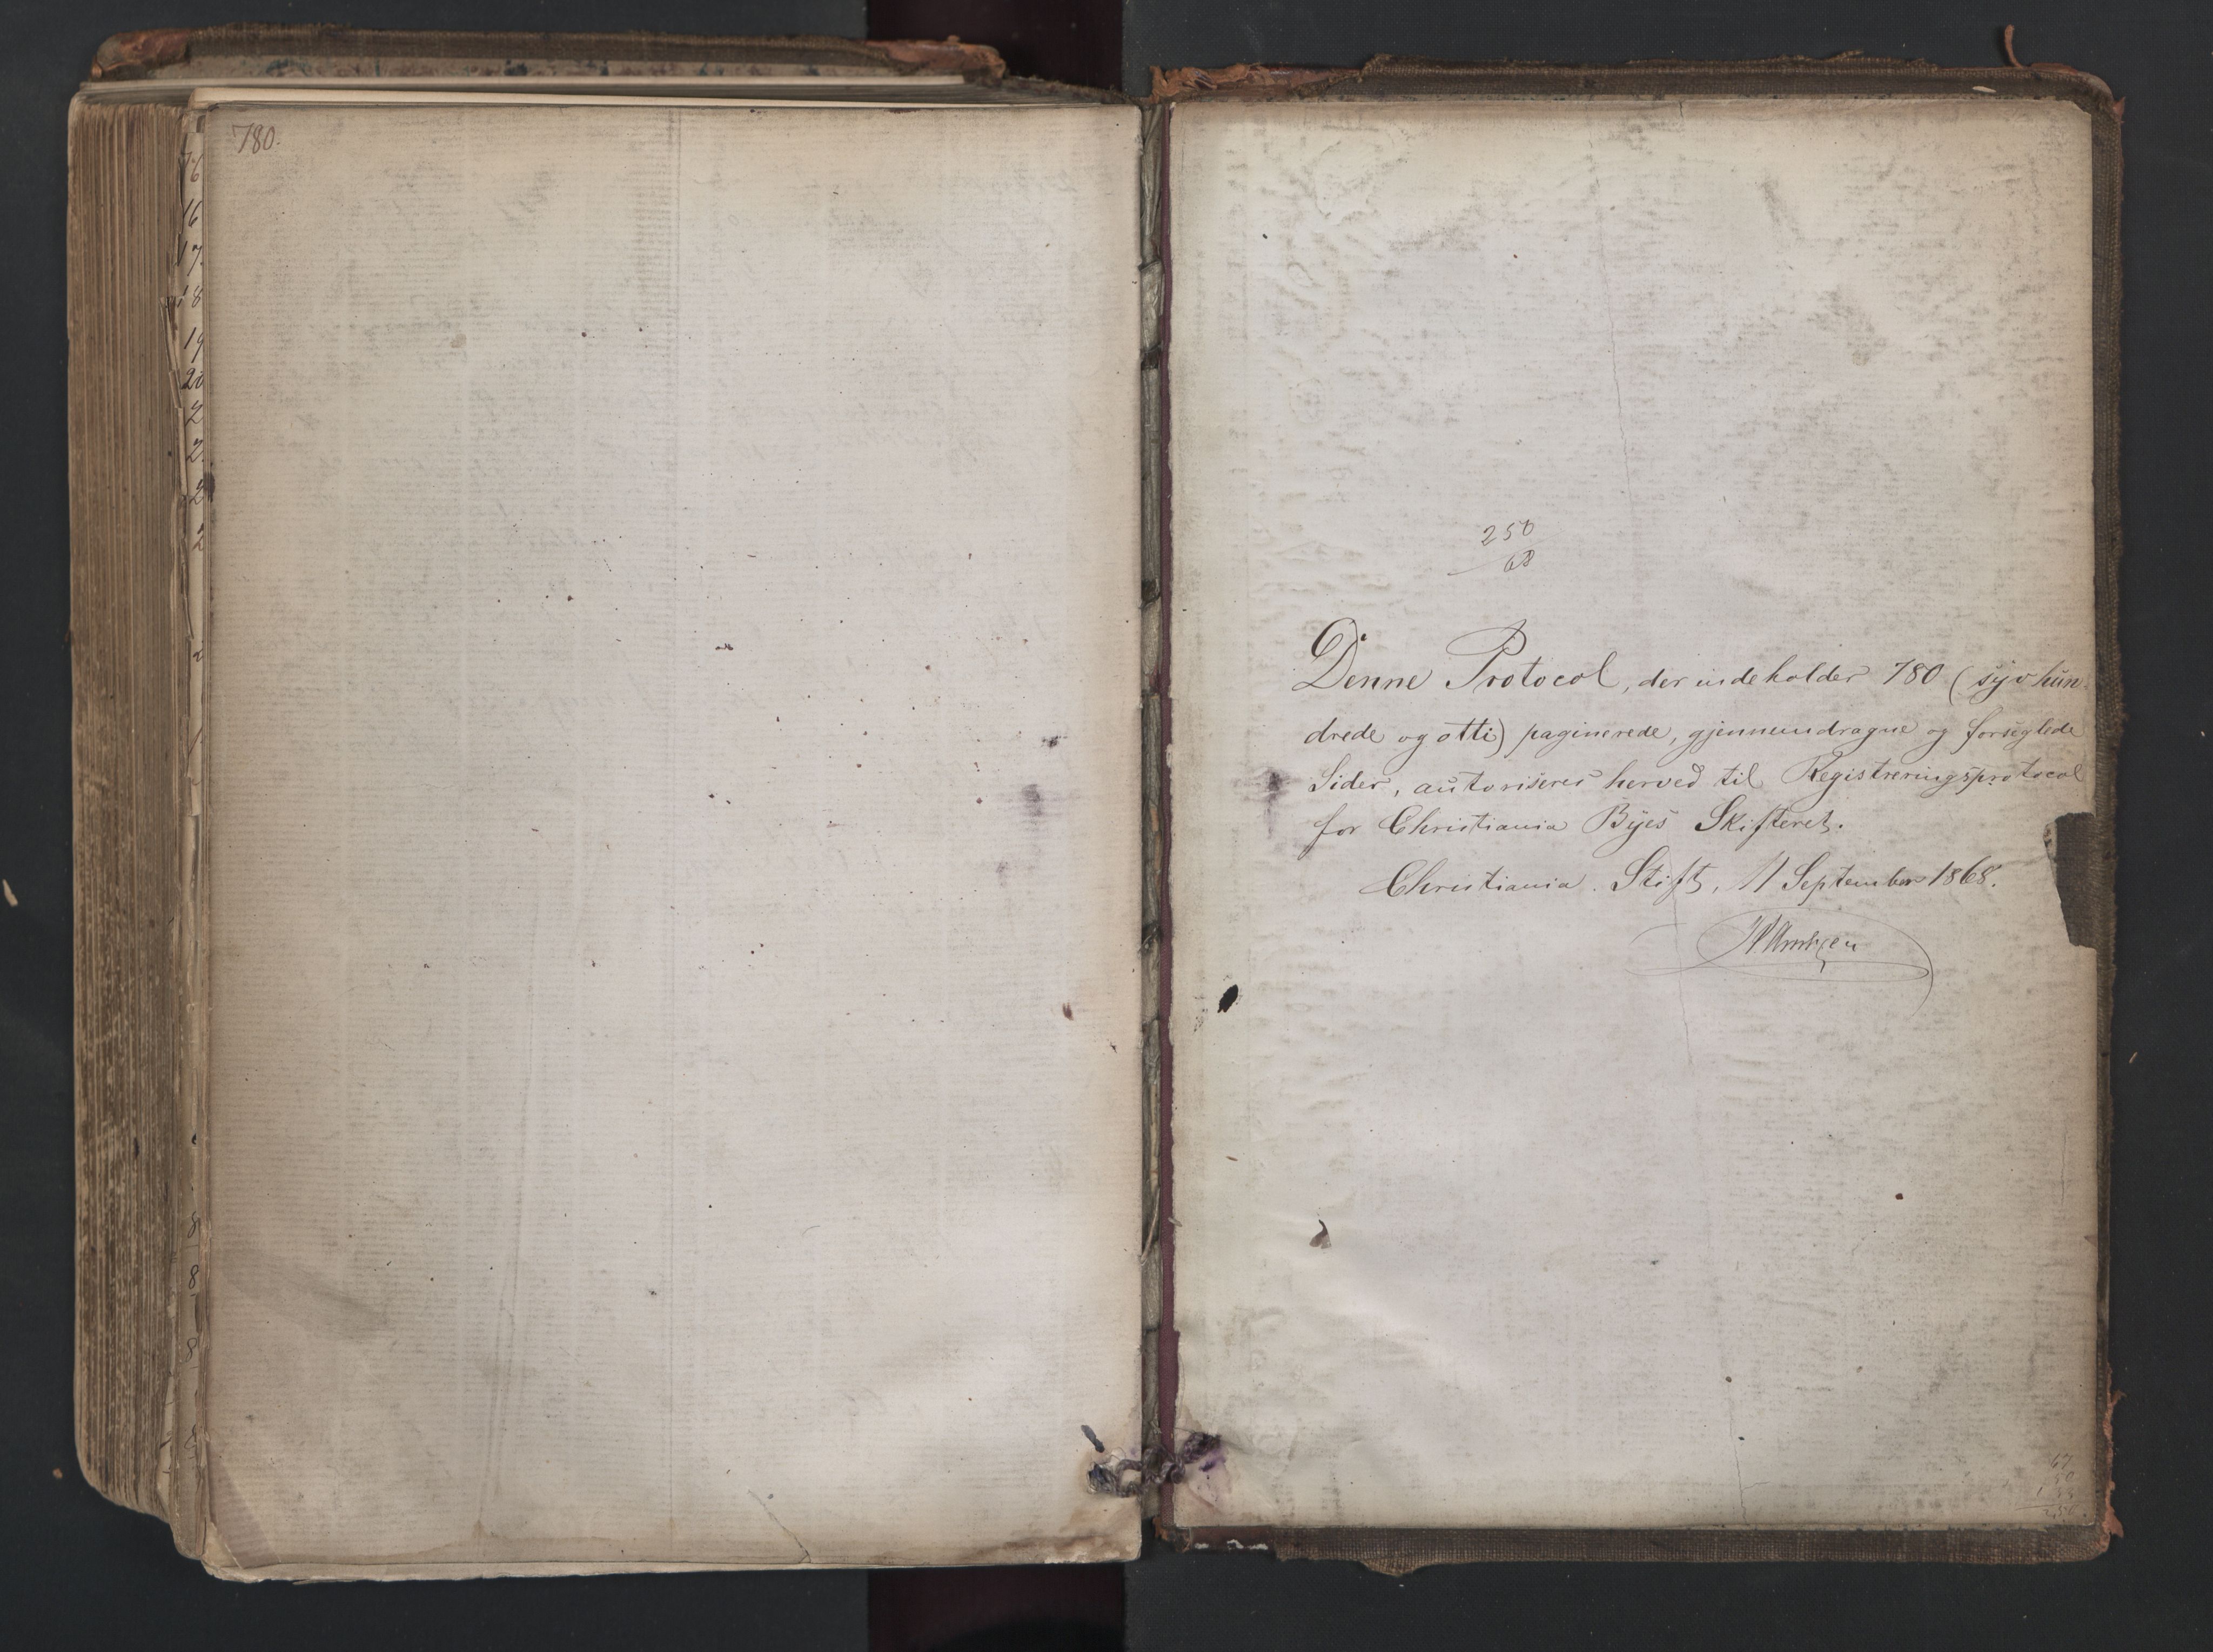 780.
16
17
18
19
20
2
2
2
2
2
8
8
8
250
68
Denne Protocol, der indeholder 780 (syv hun-
drede og otti) paginerede, gjennemdragne og forseglede
Sider, autoriseres herved til Registreringsprotocol
for Christiania Byes Skifteret.
Christiania Stift, 11 September 1868.